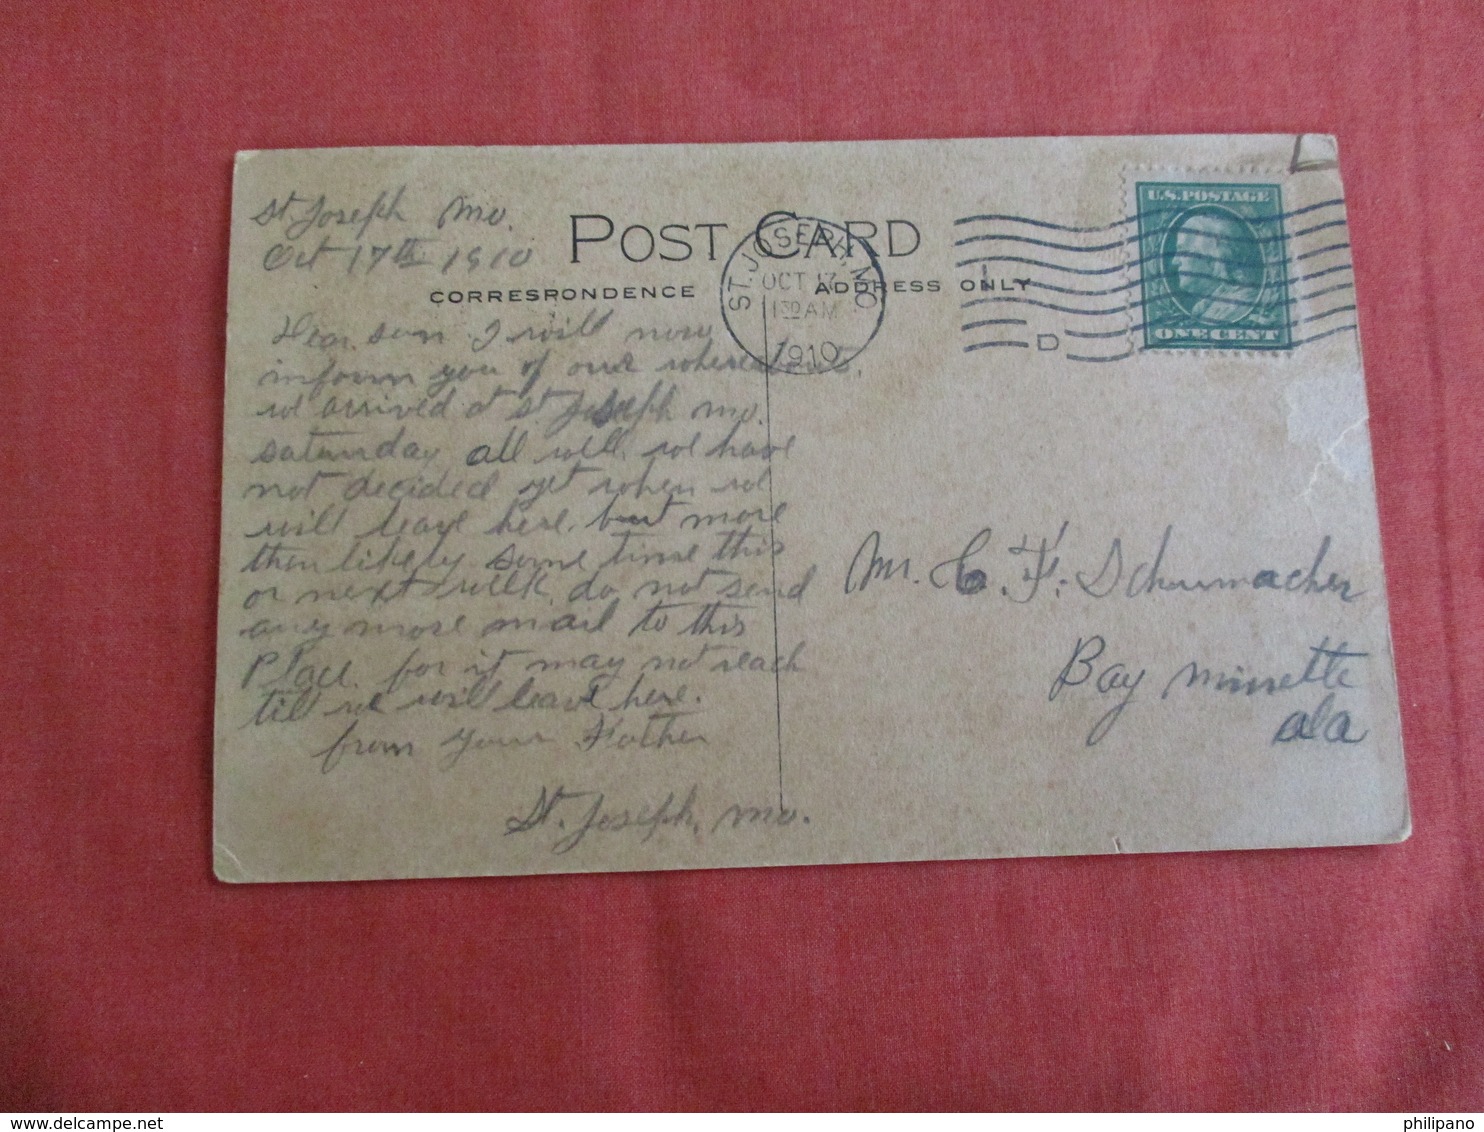 St Joseph Mo.
Oct 17th 1910
POST CARD
CORRESPONDENCE
ADDRESS ONLY
ST. JOSEPH, MO.
OCT 17
130 AM
1910
D
U.S. POSTAGE
ONE CENT
Dear son I will now
inform you of our whereabouts,
we arrived at St Joseph mo.
saturday all well. we have
not decided yet when we
will leave here, but more
then likely some time this
or next week, do not send
any more mail to this
Place for it may not reach
till we will leave here.
from your Father
St. Joseph, mo.
Mr. C. F. Schumacher
Bay minette
ala
philipano
delcampe.net